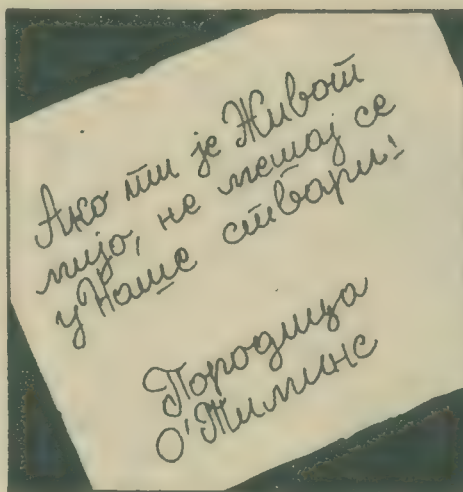 Ако ти је Живот
мијо, не мешај се
у Наше ствари!
Породица
О'Тиминс